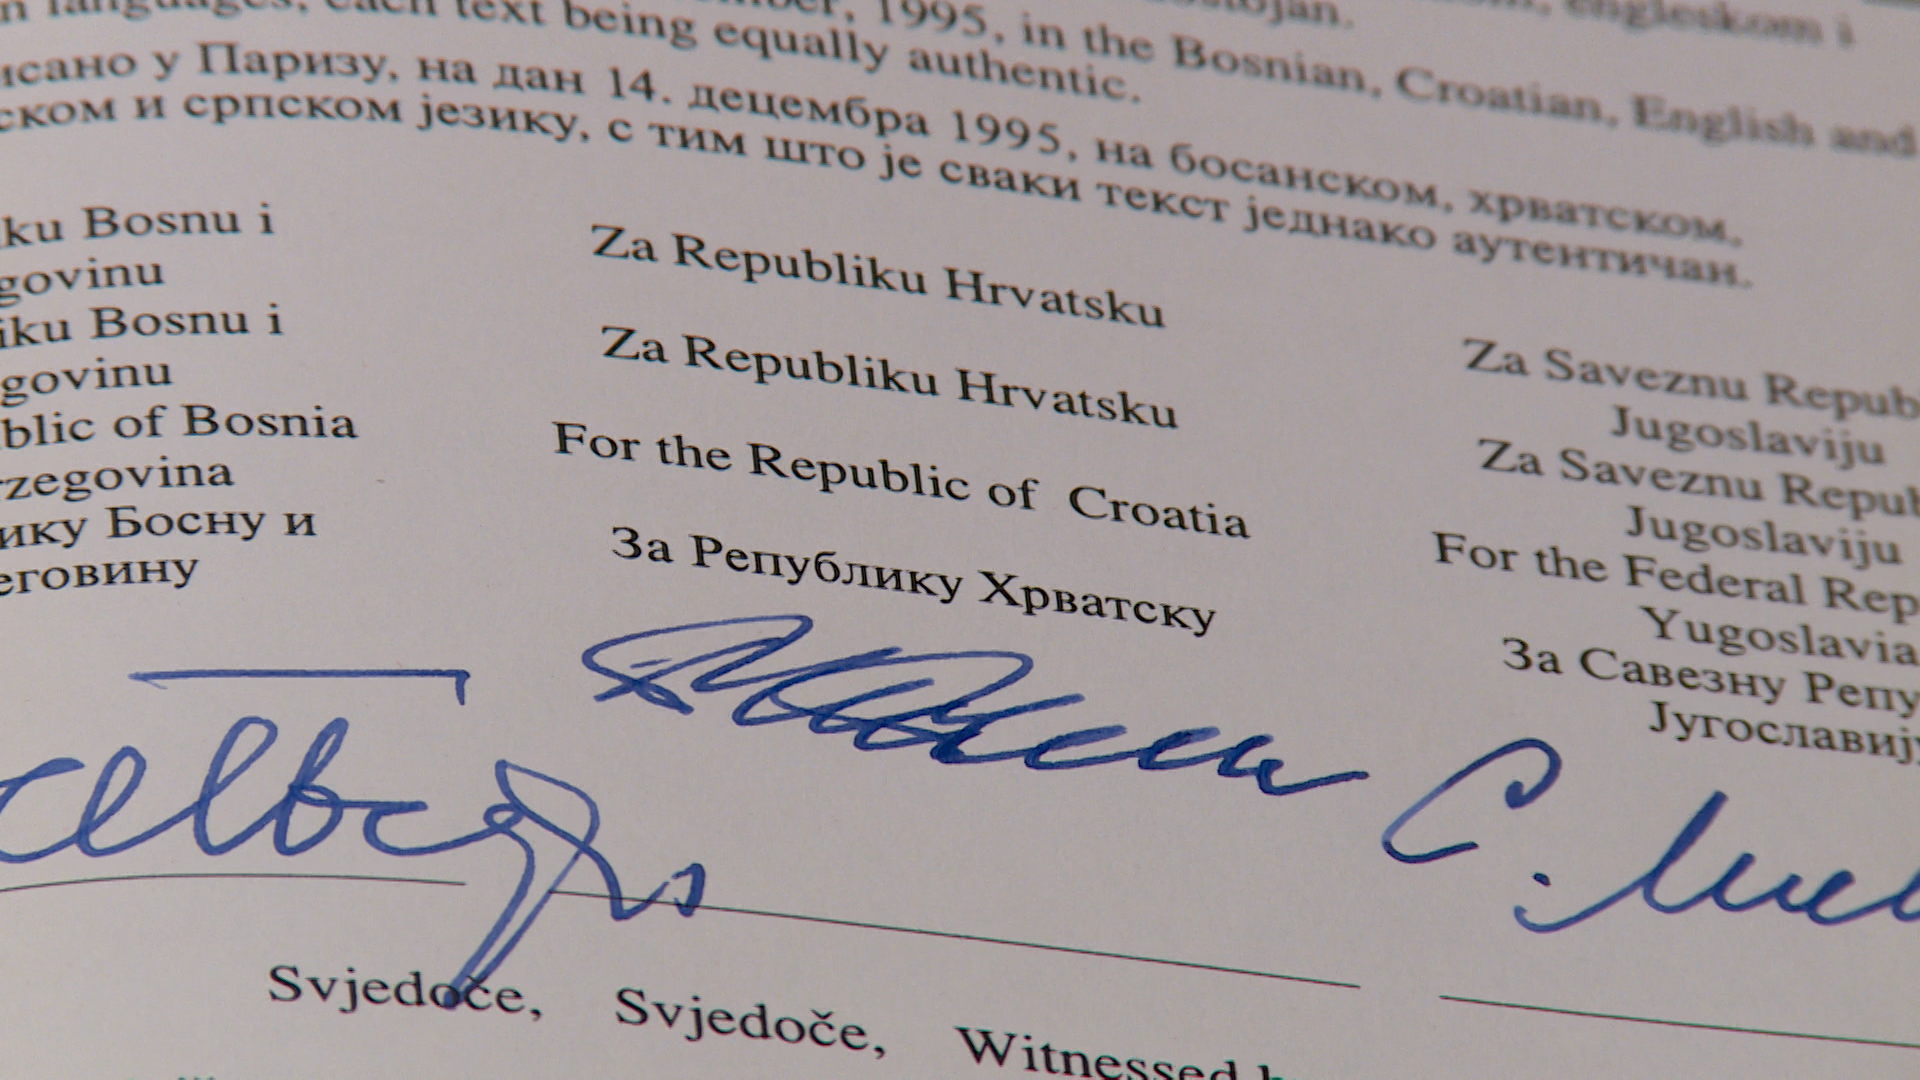 engleskom i
languages, each text being equally authentic.
1995, in the Bosnian, Croatian, English and
у Паризу, на дан 14. децембра 1995, на босанском, хрватском,
и српском језику, с тим што је сваки текст једнако аутентичан.
ku Bosnu i
govinu
iku Bosnu i
govinu
blic of Bosnia
rzegovina
ику Босну и
еговину
Za Republiku Hrvatsku
Za Republiku Hrvatsku
For the Republic of Croatia
За Републику Хрватску
Za Saveznu Repub
Jugoslaviju
Za Saveznu Repub
Jugoslaviju
For the Federal Rep
Yugoslavia
За Савезну Репу
Југославиј
Svjedoče, Svjedoče, Witnessed b